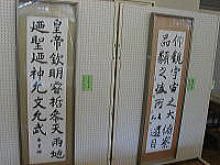 仰觀宇宙之大俯察
品類之盛所以遊目
皇帝欽明睿哲參天兩地
廼聖廼神允文允武